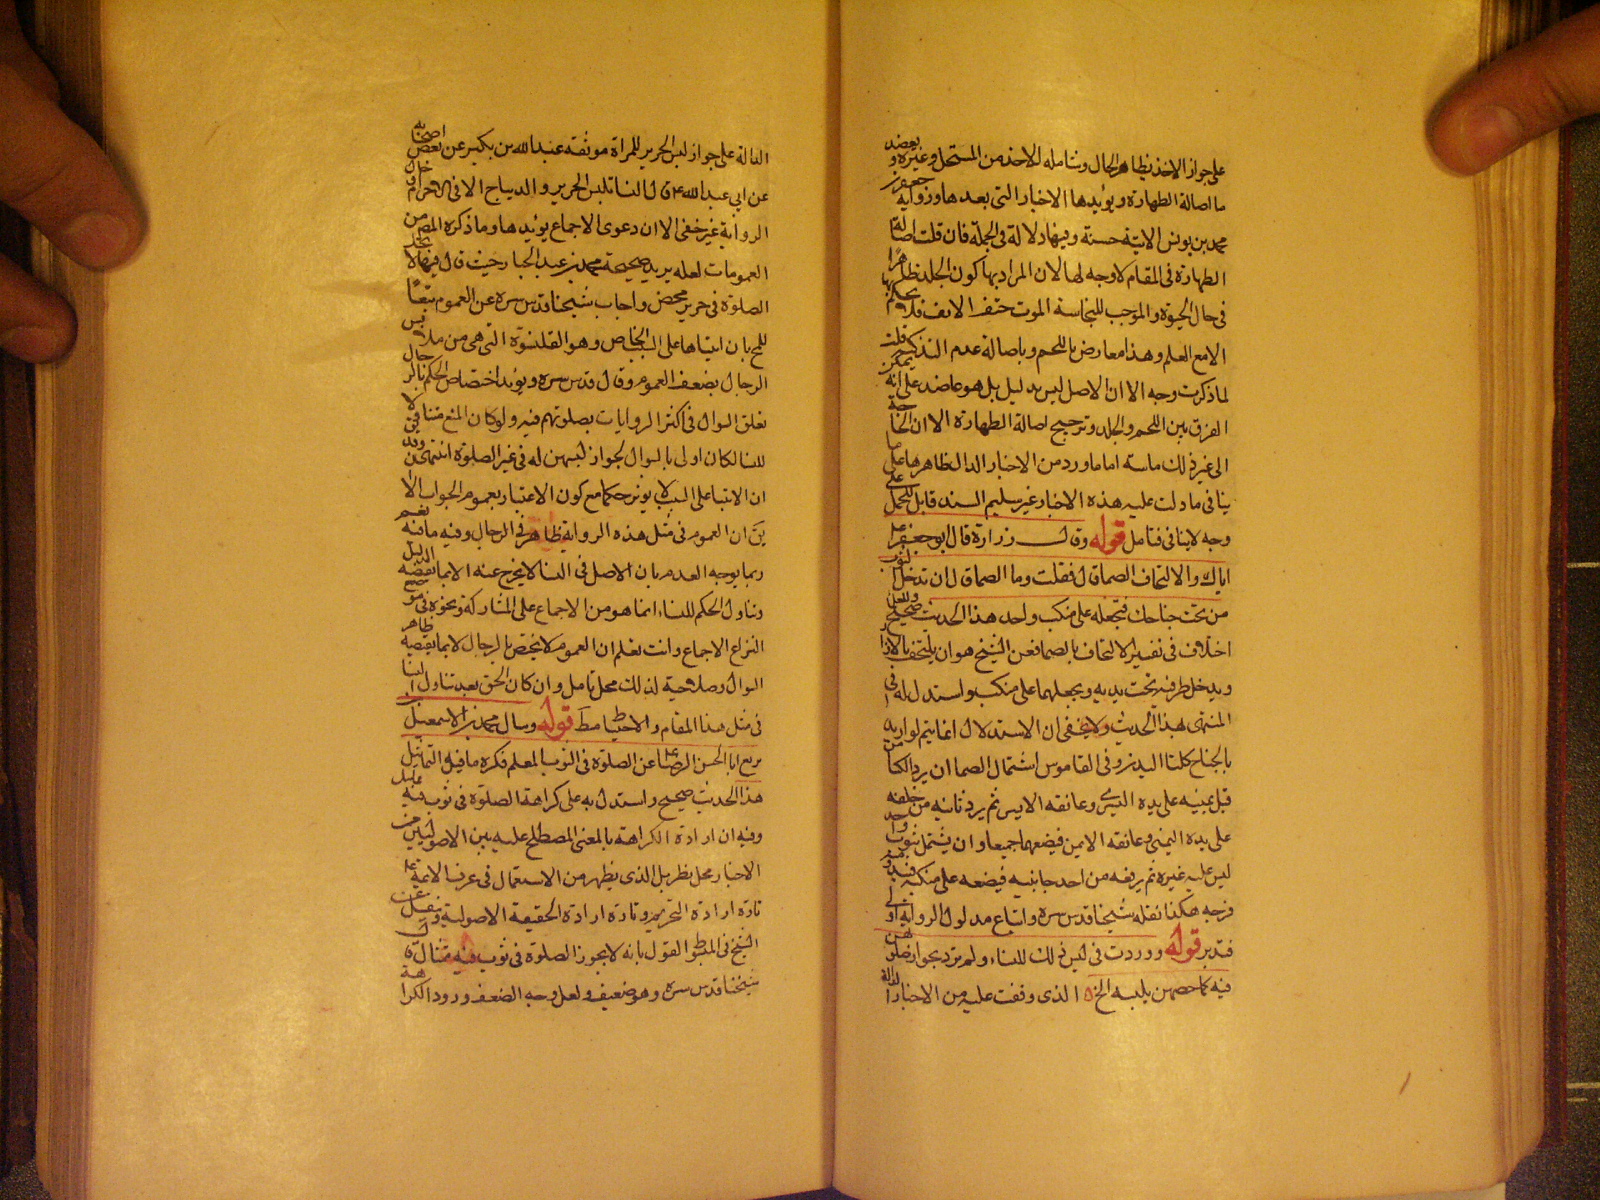 على جواز الاخذ بظاهر الحال وشامله للاخذ من المستحل وغيره ويعضد
ما اصالة الطهارة ويؤيدها الاخبار التى بعدها ورواية جعفر بن
محمد بن يونس الاتية حسنة وفيها دلالة فى الجملة فان قلت اصالة
الطهارة فى المقام لا وجه لها لان المراد بها كون الجلد طاهرا
فى حال الحيوة والموجب للنجاسة الموت حتف الانف فلا يحكم بها
الا مع العلم وهذا معارض باللحم وباصالة عدم التذكية قلت
لما ذكرت وجه الا ان الاصل ليس بدليل بل هو عاضد على انه يمكن
الفرق بين اللحم والجلد وترجيح اصالة الطهارة الا ان الحاجة
الى غير ذلك ماسة اما ما ورد من الاخبار الدالة ظاهرها على ما
ينافى ما دلت عليه هذه الاخبار غير سليم السند قابل للحمل على
وجه لا ينافى فتامل قوله وقال زرارة قال ابو جعفر ع
اياك والالتحاف الصماء قال فقلت وما الصماء قال ان تدخل الثوب
من تحت جناحك فتجعله على منكب واحد هذا الحديث صحيح وللعلماء
اختلاف فى تفسير الالتحاف بالصماء فعن الشيخ هو ان يلتحف بالازار
ويدخل طرفيه تحت يديه ويجعلهما على منكب واستدل له فى
المنتهى بهذا الحديث ولا يخفى ان الاستدلال انما يتم لو اريد
بالجناح كلتا اليدين وفى القاموس اشتمال الصما ان يرد الكسا من
قبل يمينه على يده اليسرى وعاتقه الايسر ثم يرد ثانيه من خلفه
على يده اليمنى وعاتقه الايمن فيضعهما جميعا وان يشتمل بثوب واحد
ليس عليه غيره ثم يرفعه من احد جانبيه فيضعه على منكبه فيبدو منه
فرجه هكذا نقله شيخنا قدس سره واتباع مدلول الرواية اولى
فتدبر قوله ووردت فى لبس ذلك للنساء ولم ترد بجواز صلوتهن
فيه كما خصهن بلبسه الخ ه الذى وقفت عليه من الاخبار الدالة
الدالة على جواز لبس الحرير للمراة موثقه عبد الله بن بكير عن بعض اصحابه
عن ابى عبد الله ع قال النسا تلبس الحرير والديباج الا فى الاحرام وحال
الرواية غير خفى الا ان دعوى الاجماع يؤيدها وما ذكره المص من
العمومات لعله يريد صحيحة محمد بن عبد الجبار حيث قال فيها لا تحل
الصلوة فى حرير محض واجاب شيخنا قدس سره عن العموم تبعا
للمع بان ابتناها على السبب الخاص وهو القلنسوة التى هى من ملابس
الرجال يضعف العموم وقال قدس سره ويؤيد اختصاص الحكم بالرجال
تعلق السوال فى اكثر الروايات بصلوتهم فيه ولو كان المنع متناولا
للنسا لكان اولى بالسوال لجواز لبسهن له فى غير الصلوة انتهى وفيه
ان الابتنا على السبب لا يؤثر حكما مع كون الاعتبار بعموم الجواب الا
يق ان العموم فى مثل هذه الرواية ظاهر فى الرجال وفيه ما فيه نعم
ربما يوجه العدم بان الاصل فى النسا لا يخرج عنه الا بما يقتضيه الدليل
وتناول الحكم للنساء انما هو من الاجماع على المشاركة ونحوه فى موضع
النزاع الاجماع وانت تعلم ان العموم لا يختص بالرجال لا بما يقتضيه ظاهر
السوال وصلاحية لذلك محل تامل وان كان الحق بعد تناول النسا
فى مثل هذا المقام والاحتياط مط قوله وسال محمد بن اسمعيل
بن بزيع ابا الحسن الرضا ع عن الصلوة فى الثوب المعلم فكره ما فيه التماثيل
هذا الحديث صحيح واستدل به على كراهة الصلوة فى ثوب فيه تماثيل
وفيه ان ارادة الكراهة بالمعنى المصطلح عليه بين الاصوليين من
الاخبار محل نظر بل الذى يظهر من الاستعمال فى عرف الائمة ع
تارة ارادة التحريم وتارة ارادة الحقيقة الاصولية ونقل عن
الشيخ فى المبسوط القول بانه لا يجوز الصلوة فى ثوب فيه تمثال قال
شيخنا قدس سره وهو ضعيف ولعل وجه الضعف ورود الكراهة